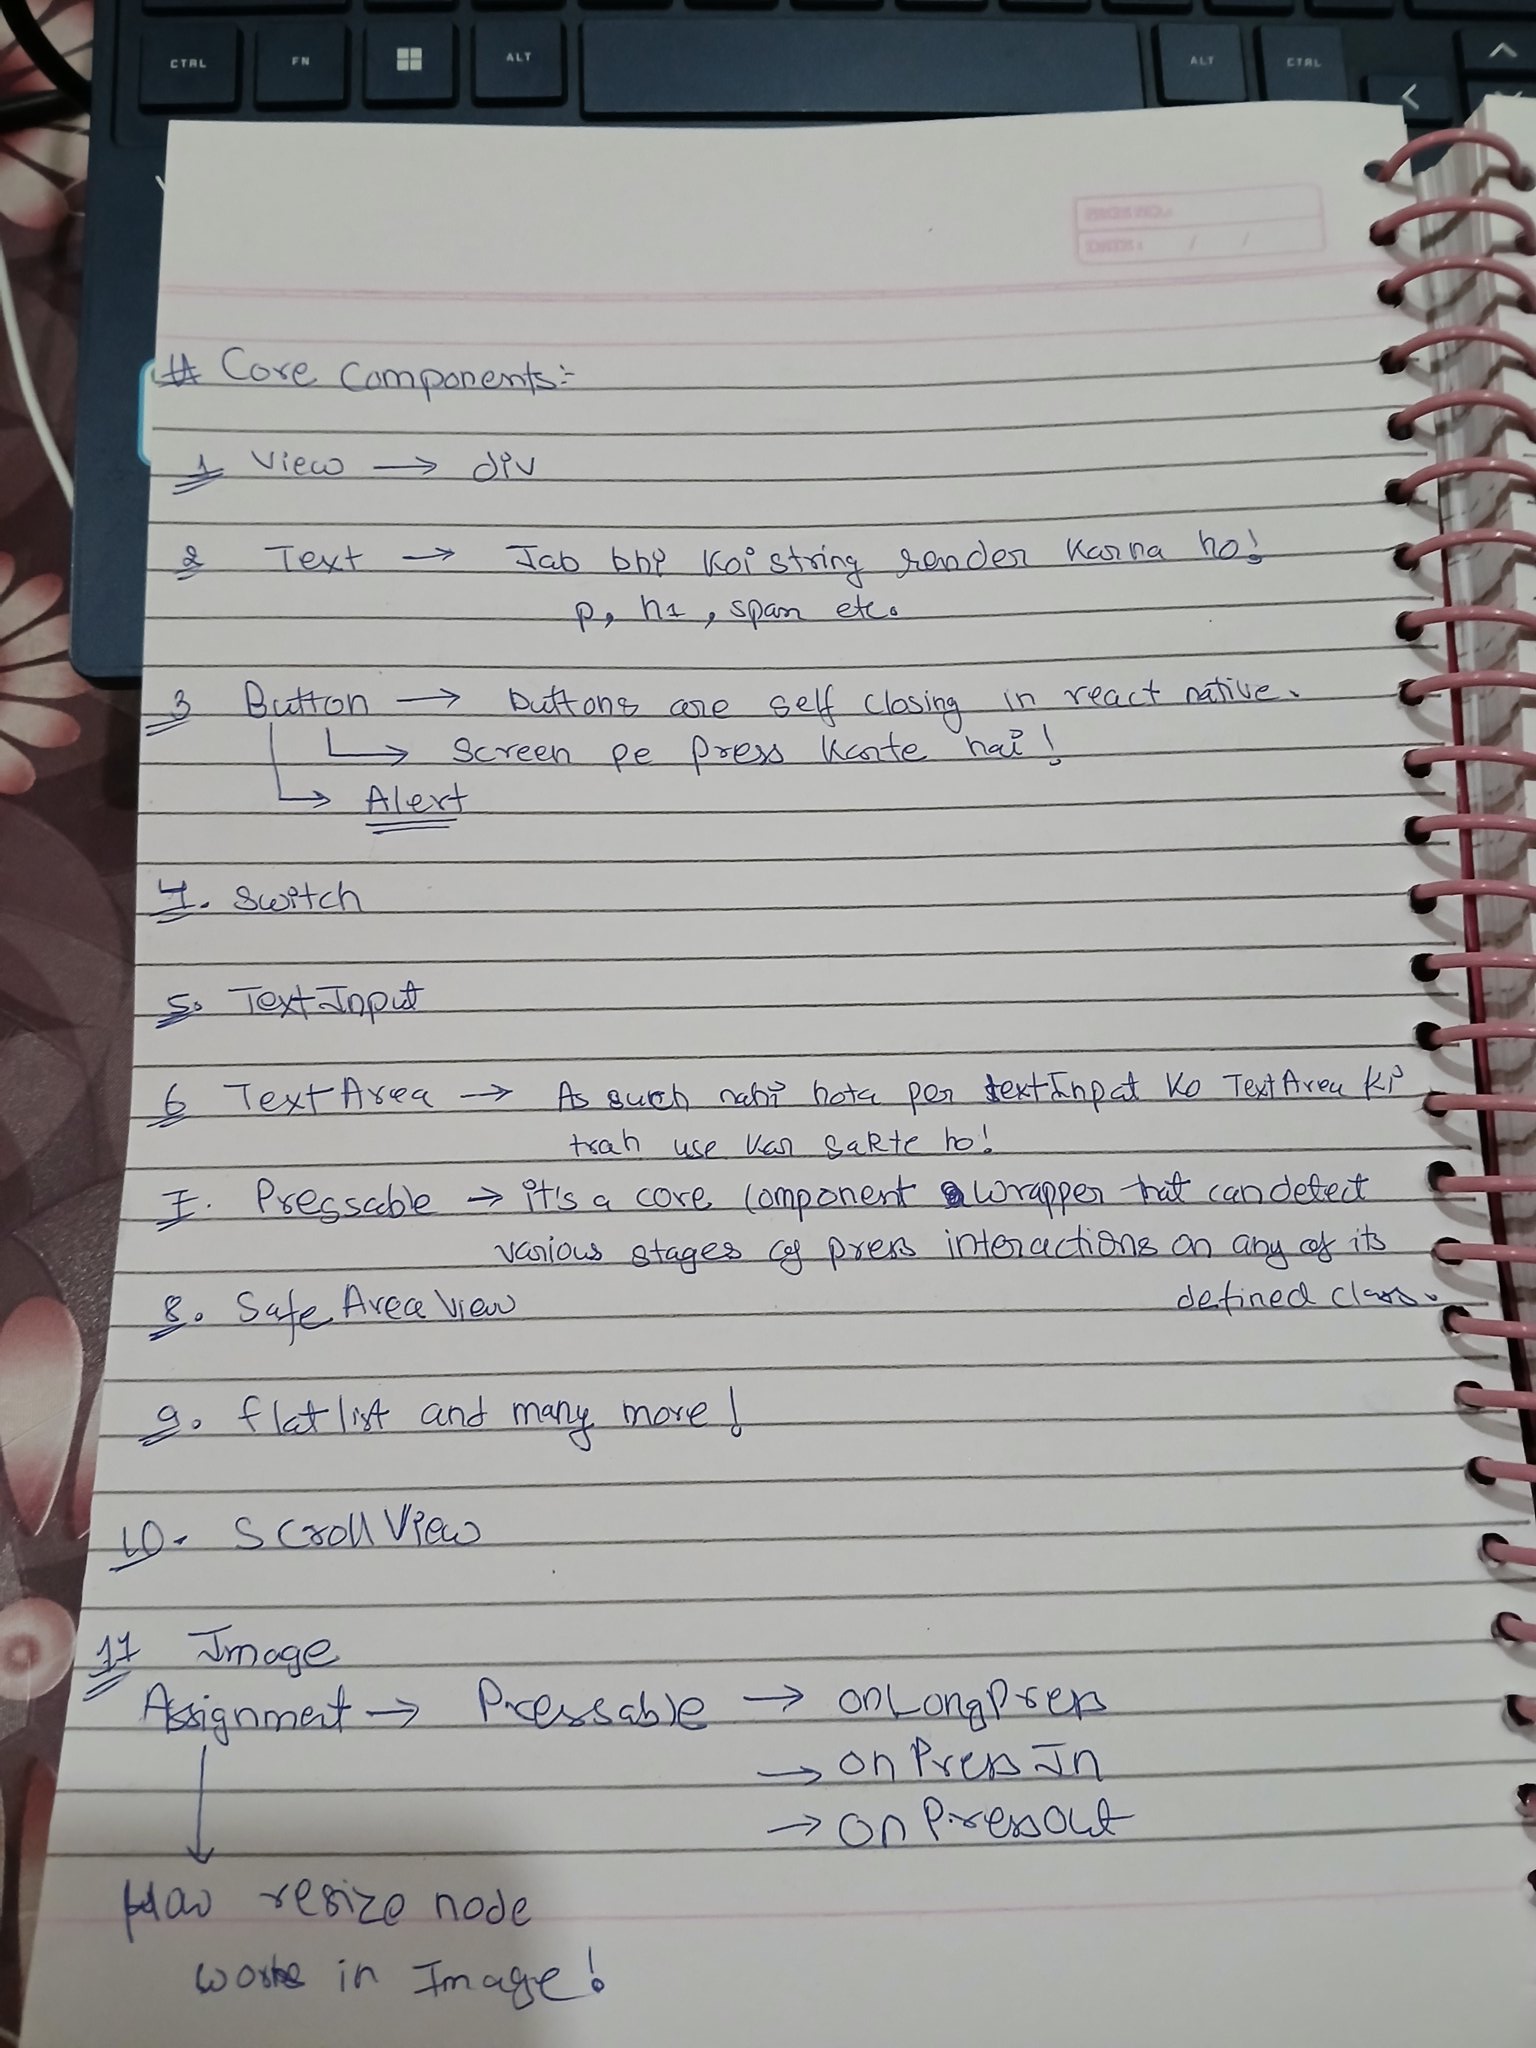 CTRL FN ALT ALT CTRL
# Core Components:-
1 View → div
2 Text → Jab bhi koi string render karna ho!
p, h1, span etc.
3 Button → buttons are self closing in react native.
→ Screen pe press karte hai!
→ Alert
4. Switch
5. TextInput
6 TextArea → As such nahi hota per textInput ko TextArea ki
trah use kar sakte ho!
7. Pressable → it's a core component wrapper that can detect
various stages of press interactions on any of its
defined class.
8. Safe Area View
9. flatlist and many more!
10. Scroll View
11 Image
Assignment → Pressable → onLongPress
→ on Press In
→ on Press Out
How resize node
works in Image!